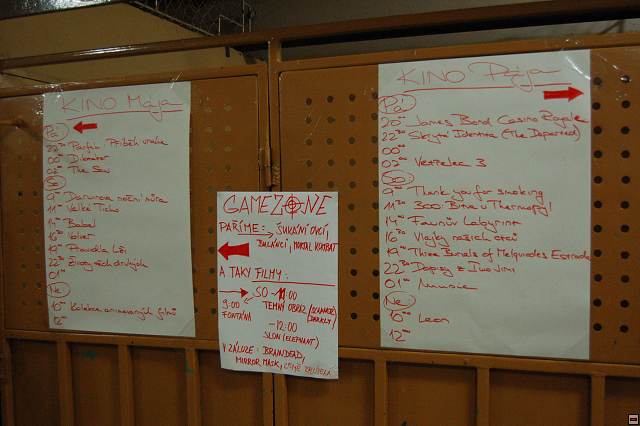 KINO Mája
Pá!
22³⁰ Parfém Příběh vraha
00⁰⁰
02⁰⁰ The Saw
So
9⁰⁰ Darwinova noční můra
11³⁰ Velké Ticho
Babel
16³⁰ Volver
19⁰⁰ Pravidla Lži
22³⁰ Životy těch druhých
01⁰⁰
Ne
10⁰⁰ Kolekce animovaných filmů
12⁰⁰
GAMEZONE
PAŘÍME: ŠUKÁNÍ OVCÍ,
BULÁNCI, MORTAL KOMBAT
A TAKY FILMY:
SO
9:00
FONTÁNA
TEMNÝ OBRAZ (SCANNER DARKLY)
-12:00
SLON (ELEPHANT)
V ZÁLOZE: BRAINDEAD,
MIRROR MASK,
KINO Péja
Pá
20⁰⁰ James Bond Casino Royale
22³⁰ Skrytá Identita (The Departed)
00⁰⁰
02⁰⁰ Vetřelec 3
So
9⁰⁰ Thank you for smoking
11³⁰ 300: Bitva u Thermopyl!
14⁰⁰ Faunův Labyrint
16³⁰ Vlajky našich otců
19⁰⁰ Three Burials of Melquiades Estrada
22³⁰ Dopisy z Iwo Jimi
01⁰⁰ Mumie
Ne
10⁰⁰ Leon
12⁰⁰